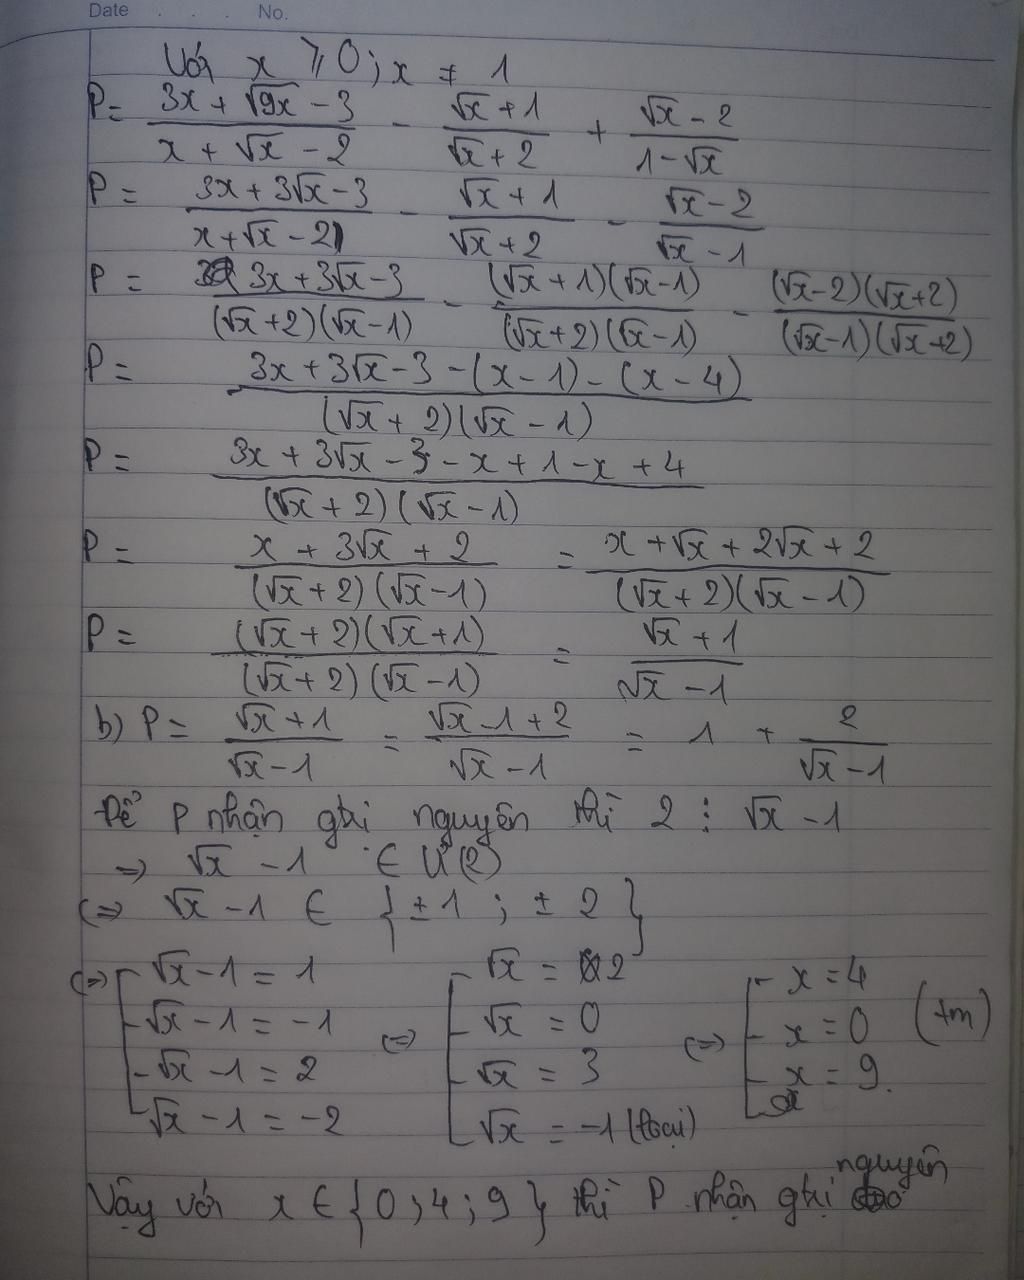 Date . . . No.
Với x ⩾ 0 ; x ≠ 1
P = (3x + √9x - 3)/(x + √x - 2) - (√x + 1)/(√x + 2) + (√x - 2)/(1 - √x)
P = (3x + 3√x - 3)/(x + √x - 2) - (√x + 1)/(√x + 2) - (√x - 2)/(√x - 1)
P = (3x + 3√x - 3)/((√x + 2)(√x - 1)) - ((√x + 1)(√x - 1))/((√x + 2)(√x - 1)) - ((√x - 2)(√x + 2))/((√x - 1)(√x + 2))
P = (3x + 3√x - 3 - (x - 1) - (x - 4))/((√x + 2)(√x - 1))
P = (3x + 3√x - 3 - x + 1 - x + 4)/((√x + 2)(√x - 1))
P = (x + 3√x + 2)/((√x + 2)(√x - 1)) = (x + √x + 2√x + 2)/((√x + 2)(√x - 1))
P = ((√x + 2)(√x + 1))/((√x + 2)(√x - 1)) = (√x + 1)/(√x - 1)
b) P = (√x + 1)/(√x - 1) = (√x - 1 + 2)/(√x - 1) = 1 + 2/(√x - 1)
Để P nhận gtri nguyên thì 2 ⋮ √x - 1
=> √x - 1 ∈ Ư(2)
<=> √x - 1 ∈ {±1 ; ±2}
<=> [ √x - 1 = 1 [ √x = 2 [ x = 4
√x - 1 = -1 <=> √x = 0 <=> x = 0 (tm)
√x - 1 = 2 √x = 3 x = 9.
√x - 1 = -2 √x = -1 (loại)
Vậy với x ∈ {0 ; 4 ; 9} thì P nhận gtri nguyên